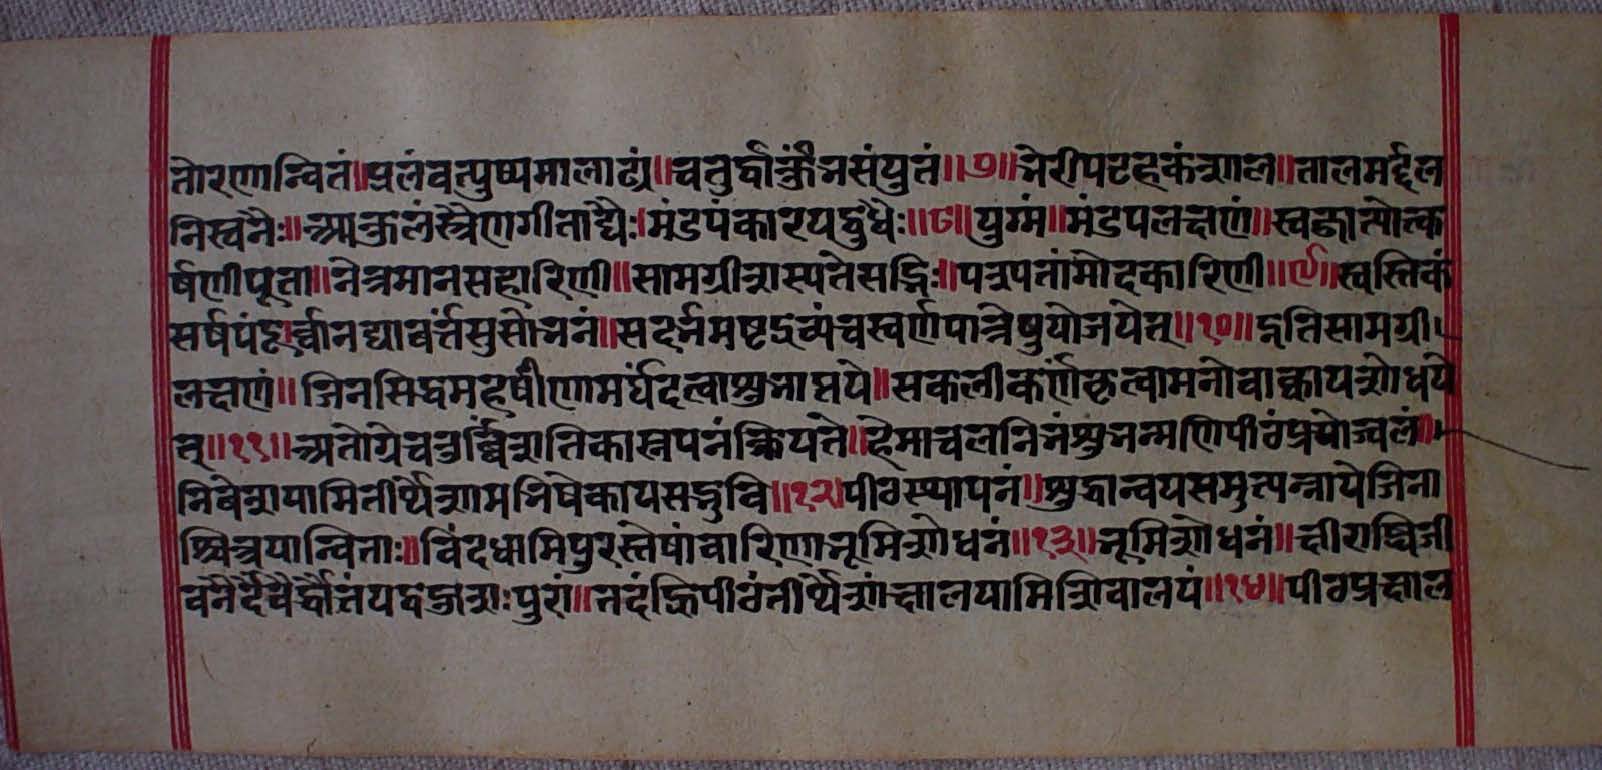 तोरणान्वितं॥प्रलंवत्पुष्पमालाढ्यं॥चतुर्घाकुंभसंयुतं॥७॥भेरीपटहकंशाल॥तालमर्द्दल
निस्वनैः॥आकुलंस्त्रैणगीताद्यैः।मंडपंकारयद्बुधैः॥८॥युग्मं॥मंडपलक्षणं॥स्वजात्योत्क
र्षणीपूता॥नेत्रमानसहारिणी॥सामग्रीशस्यतेसद्भिः॥पत्रपतांमोदकारिणी॥९॥स्वस्तिकं
सर्षपंदूर्व्वानद्यावर्त्तसुसोभनं॥सदर्भमष्टद्रव्यंचस्वर्णपात्रेषुयोजयेत्॥१०॥इतिसामग्री
लक्षणं॥जिनसिद्धमहर्षीणामर्घंदत्वाशुभाप्तये॥सकलीकर्णंकृत्वामनोवाक्कायशोधये
त्॥११॥अतोग्रेचतुर्व्विंशतिकास्नपनंक्रियते॥हेमाचलनिभंशुभन्मणिपीठंप्रयोज्वलं॥
निवेशयामितीर्थेशामभिषेकायसद्भुवि॥१२॥पीठस्थापनं॥शुद्धान्वयसमुत्पन्नायेजिना
श्चित्रयान्विताः॥विंदधामिपुरस्तेषांवारिणाभूमिशोधनं॥१३॥भूमिशोधनं॥क्षीराब्धिजी
वनैर्देवैर्द्धौतंयद्बहुशःपुरां॥तदंह्रिपीठंतीर्थेशांक्षालयामिशिवालयं॥१४॥पीठप्रक्षाल